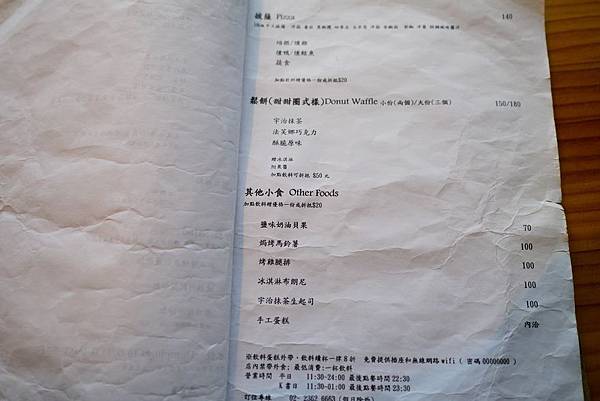 披薩 Pizza 140
培根/燻雞
燻鴨/燻鮭魚
蔬食
加點飲料糟優格一份成折抵$20
鬆餅(甜甜圈式樣)Donut Waffle 小份(兩個)/大份(三個) 150/180
宇治抹茶
法芙娜巧克力
酥脆原味
贈冰淇淋
加點飲料可折抵 $50 元
其他小食 Other Foods
鹽味奶油貝果 70
焗烤馬鈴薯 100
烤雞腿排 100
冰淇淋布朗尼 100
宇治抹茶生起司 100
手工蛋糕 內洽
※飲料蛋糕外帶,飲料續杯一律8折 免費提供插座和無線網路wifi ( 密碼00000000 )
店內禁帶外食; 最低消費:一杯飲料
營業時間 平日 11:30-24:00 最後點餐時間 22:30
11:30-01:00 最後點餐時間 23:30
訂位專線 02- 2362 6663 (假日除外)